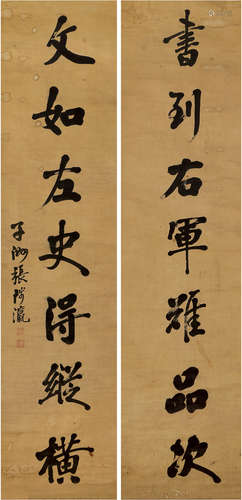 書到右軍難品次
文如左史得縱橫
子洲張琦瀛